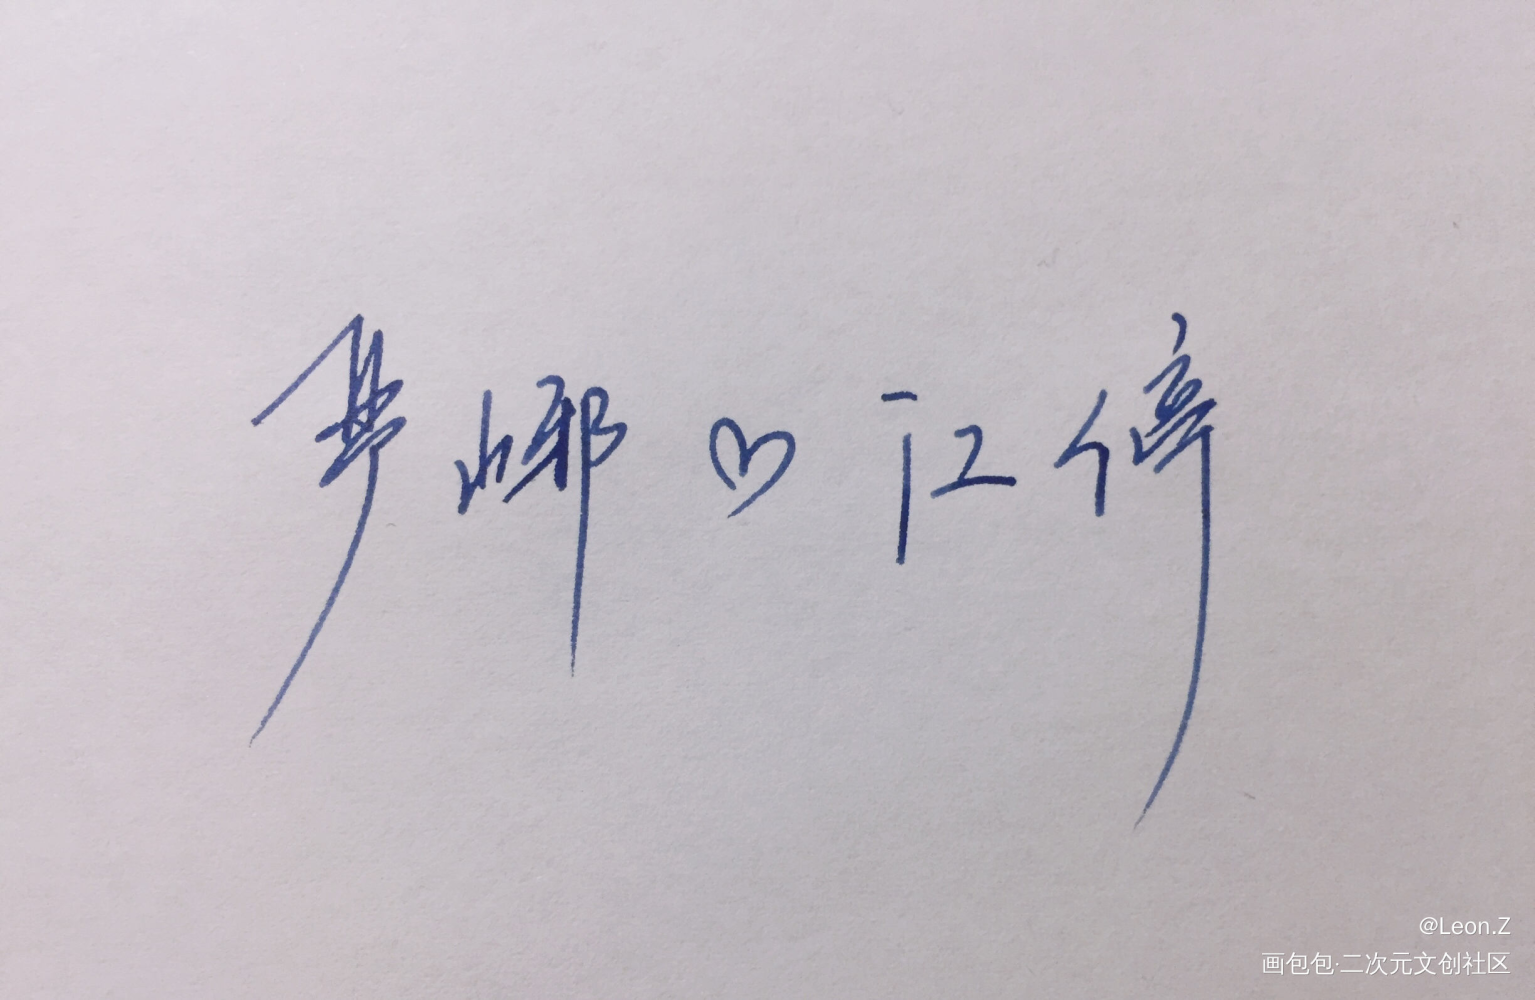 严峫♡江停
@Leon.Z
画包包·二次元文创社区